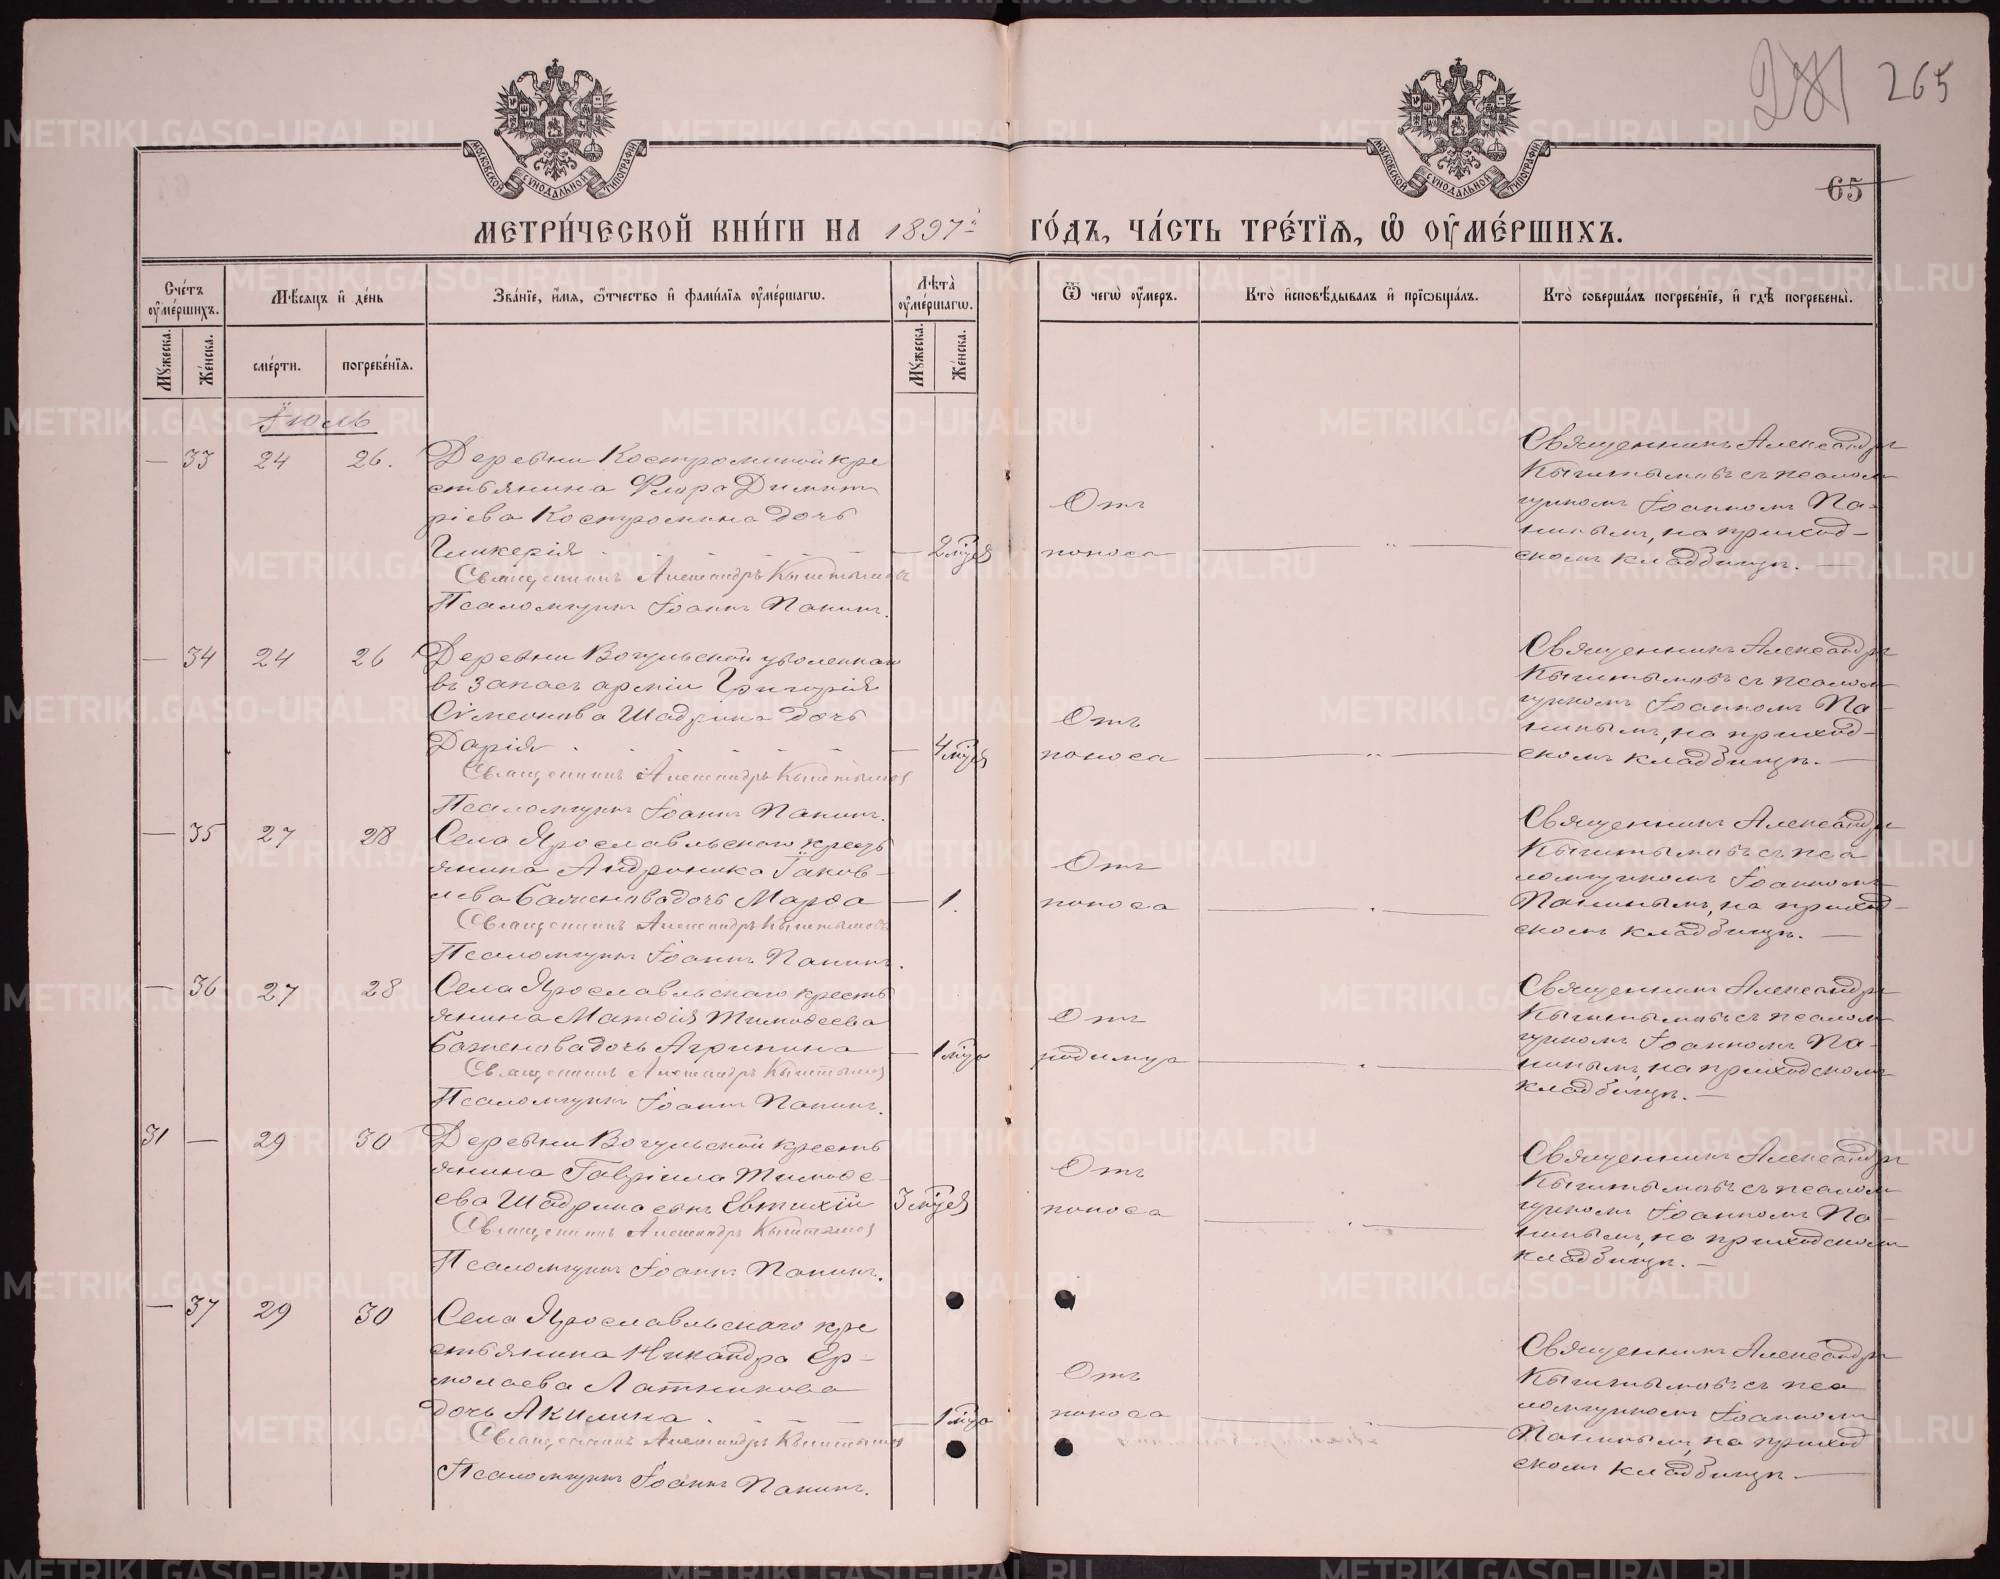 265
65
МЕТРИ́ЧЕСКОЙ КНИ́ГИ НА 1897й ГО́ДЪ, ЧА́СТЬ ТРЕ́ТІѦ, Ѡ ОУМЕ́РШИХЪ.
МОСКОВСКОЙ СѴНОДАЛЬНОЙ ТИПОГРАФІИ
МОСКОВСКОЙ СѴНОДАЛЬНОЙ ТИПОГРАФІИ
Сче́тъ оуме́ршихъ.
Мѣсѧцъ и де́нь
Зва́нїе, и́мѧ, ѻ҆́тчество и фами́лїѧ оуме́ршагѡ.
Лѣта̀ оуме́ршагѡ.
Ѿ чегѡ̀ оу́меръ.
Кто̀ исповѣ́дывалъ и прїѡбща́лъ.
Кто̀ соверша́лъ погребе́нїе, и гдѣ̀ погребены̀.
Мꙋ́жеска.
Же́нска.
сме́рти.
погребе́нїѧ.
Мꙋ́жеска.
Же́нска.
Іюль
— 33 24 26. Деревни Костроминой кре
стьянина Флора Димит
ріева Костромина дочь
Гликерія — 2 мцея
Священникъ Александръ Кыштымовъ
Псаломщикъ Іоаннъ Панинъ.
Отъ
поноса
Священникъ Александръ
Кыштымовъ съ псалом
щикомъ Іоанномъ Па-
нинымъ, на приход-
скомъ кладбищѣ. —
— 34 24 26 Деревни Вогульской уволеннаго
въ запасъ арміи Григорія
Симеонова Шадрина дочь
Дарія — 4 мцея
Священникъ Александръ Кыштымов
Псаломщикъ Іоаннъ Панинъ.
Отъ
поноса
Священникъ Александръ
Кыштымовъ съ псалом
щикомъ Іоанномъ Па-
нинымъ, на приход-
скомъ кладбищѣ. —
— 35 27 28 Села Ярославльскаго кресть
янина Андроника Іаков-
лева Баженова дочь Марѳа — 1.
Священникъ Александръ Кыштымовъ
Псаломщикъ Іоаннъ Панинъ.
Отъ
поноса
Священникъ Александръ
Кыштымовъ съ пса
ломщикомъ Іоанномъ
Панинымъ, на приход-
скомъ кладбищѣ. —
— 36 27 28 Села Ярославльскаго кресть
янина Матѳія Тимоѳеева
Баженова дочь Агрипина — 1 мца
Священникъ Александръ Кыштымов
Псаломщикъ Іоаннъ Панинъ.
Отъ
родимца
Священникъ Александръ
Кыштымовъ съ псалом
щикомъ Іоанномъ Па-
нинымъ, на приходскомъ
кладбищѣ. —
31 — 29 30 Деревни Вогульской кресть
янина Гавріила Тимоѳе-
ева Шадрина сынъ Евтихій 3 мцея
Священникъ Александръ Кыштымов
Псаломщикъ Іоаннъ Панинъ.
Отъ
поноса
Священникъ Александръ
Кыштымовъ съ псалом
щикомъ Іоанномъ Па-
нинымъ, на приходскомъ
кладбищѣ. —
— 37 29 30 Села Ярославльскаго кре
стьянина Никандра Ер-
молаева Латникова
дочь Акилина — 1 мца
Священникъ Александръ Кыштымов
Псаломщикъ Іоаннъ Панинъ.
Отъ
поноса
Священникъ Александръ
Кыштымовъ съ пса
ломщикомъ Іоанномъ
Панинымъ, на приход
скомъ кладбищѣ. —
METRIKI.GASO-URAL.RU